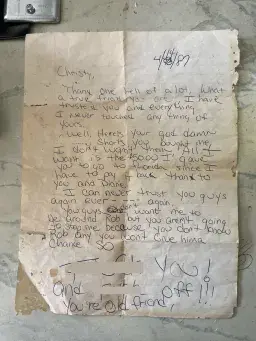 4/14/87
Christy,
Thank one hell of a lot, what
a true friend you are. I have
trusted you and everything
I never touched any thing of
yours.
Well heres your god damn
Shorts you bought me,
I don't want them. All I
want is the $5000 I gave
you to go to friends since I
have to pay it back thanks to
you and Diane.
I can never trust you guys
again ever ---- again.
You guys don't want me to
be around Rob but you aren't going
to stop me because you don't know
Rob any you won't give him a
chance. So
F You!
and Off!!!
You're old friend,